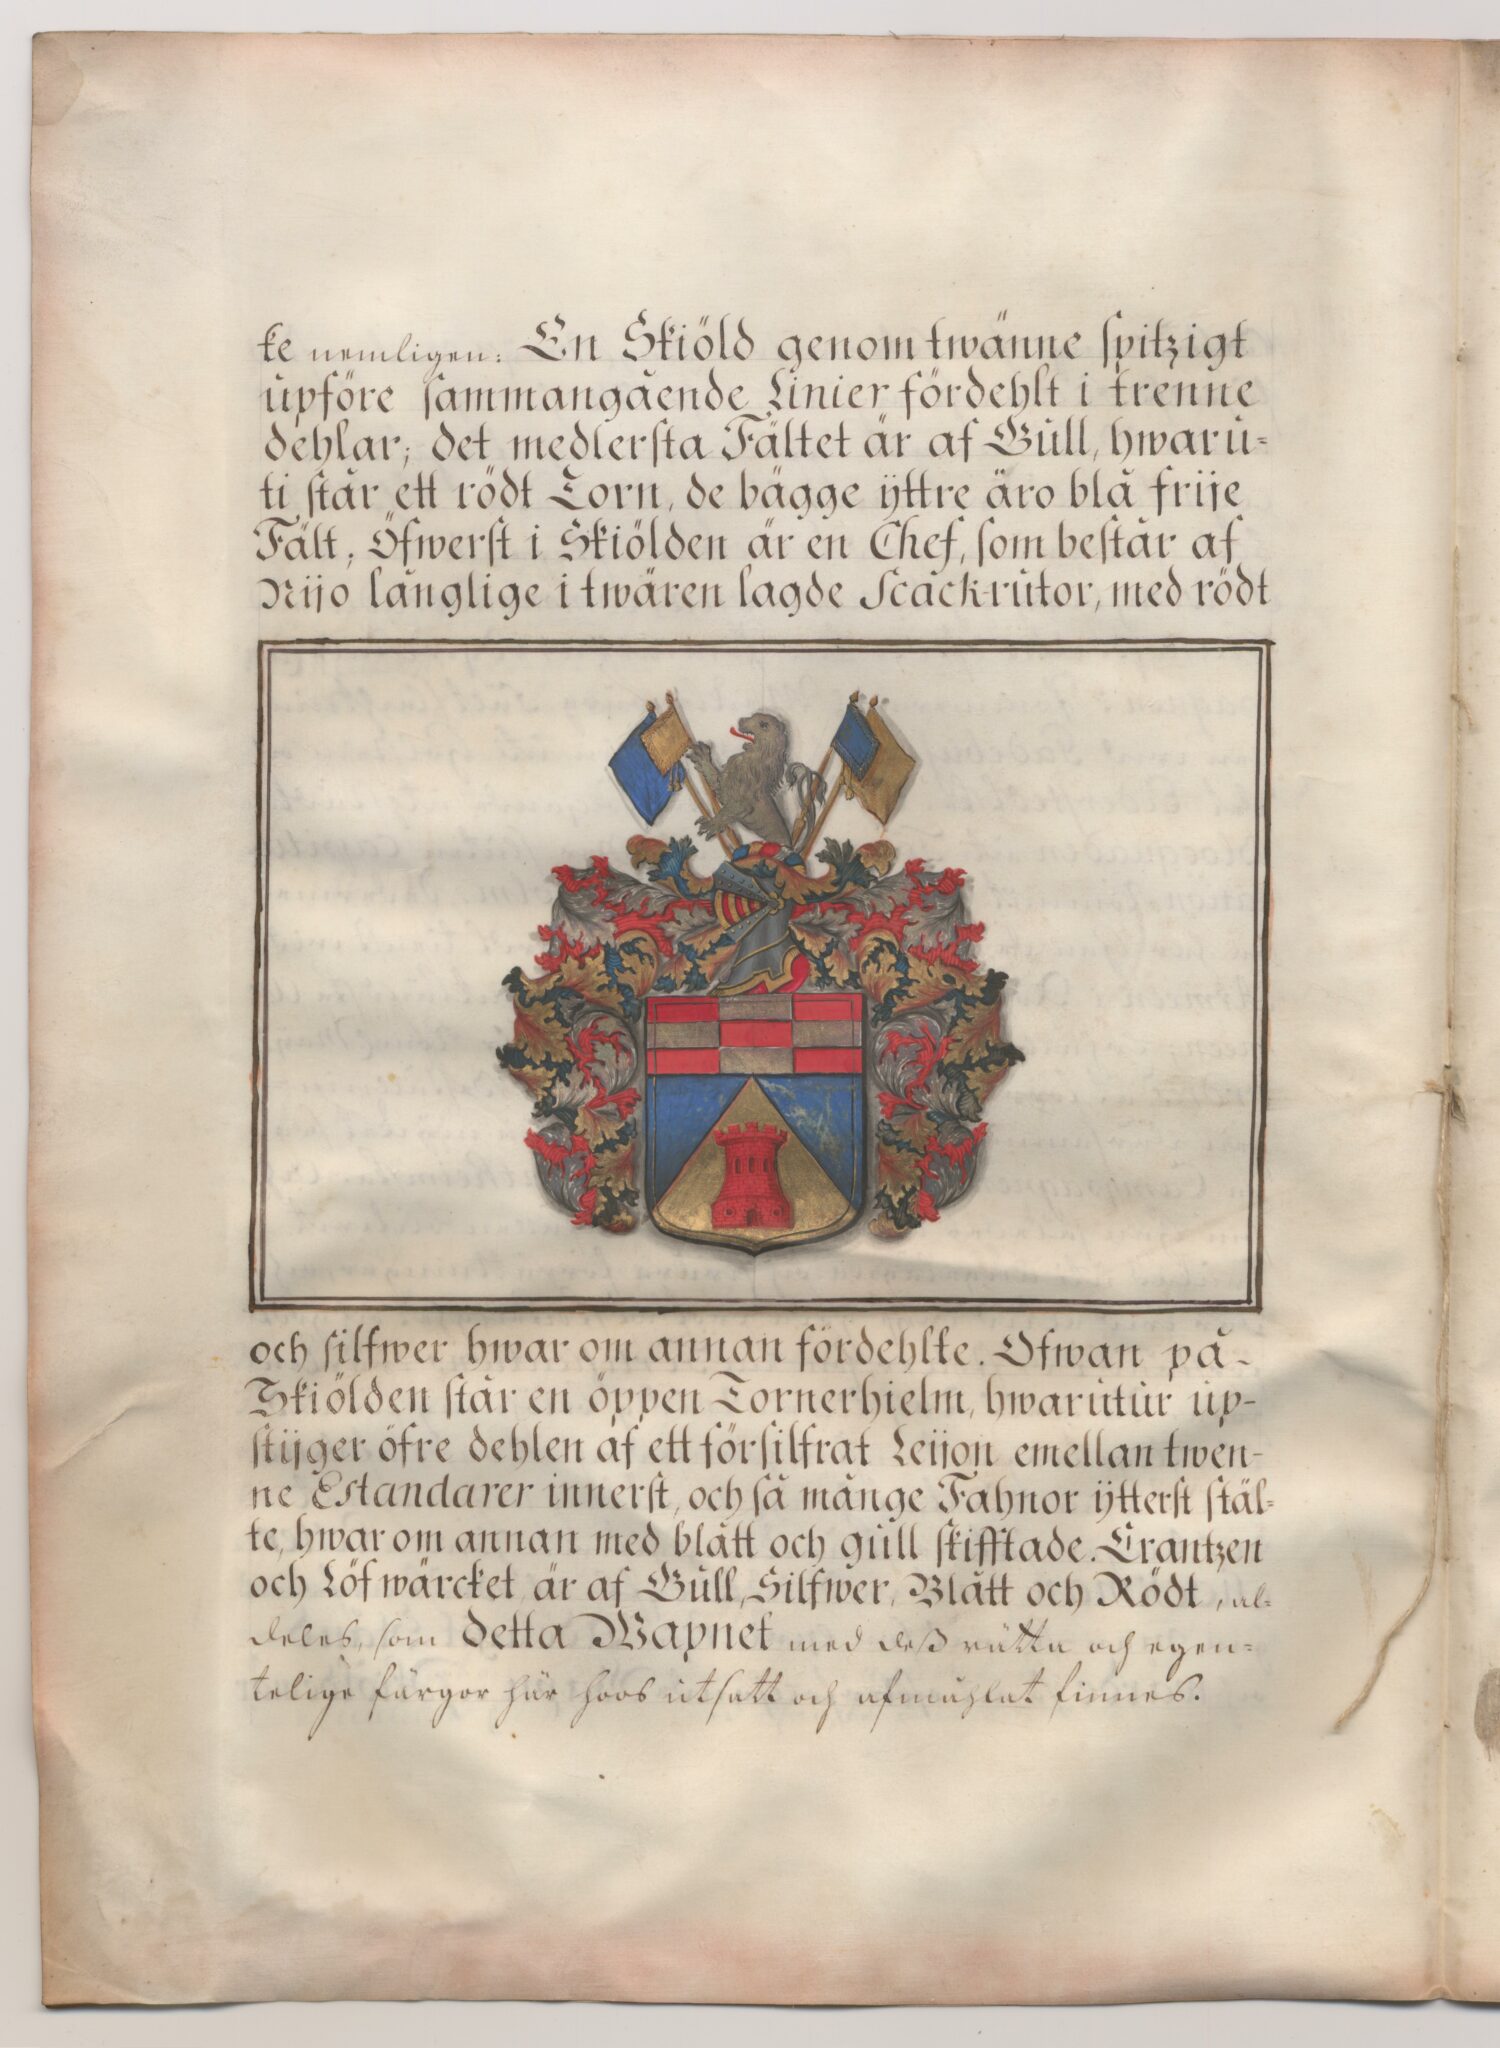 ke nemligen: En Skiöld genom twänne spitzigt
upföre sammangående Linier fördehlt i trenne
dehlar; det medlersta Fältet är af Gull, hwaru-
ti står ett rödt Torn, de bägge yttre äro blå frije
Fält; Öfwerst i Skiölden är en Chef, som består af
Nijo långlige i twären lagde Scack-rutor, med rödt
och silfwer hwar om annan fördehlte. Ofwan på
Skiölden står en öppen Tornerhielm, hwarutur up-
stijger öfre dehlen af ett försilfrat Leijon emellan twen-
ne Estandarer innerst, och så månge Fahnor ytterst stäl-
te, hwar om annan med blått och gull skifftade. Crantzen
och Löfwärcket är af Gull, Silfwer, Blått och Rödt, al-
deles, som detta Wapnet med deß rätta och egen-
telige färgor här hoos utsatt och afmåhlat finnes.